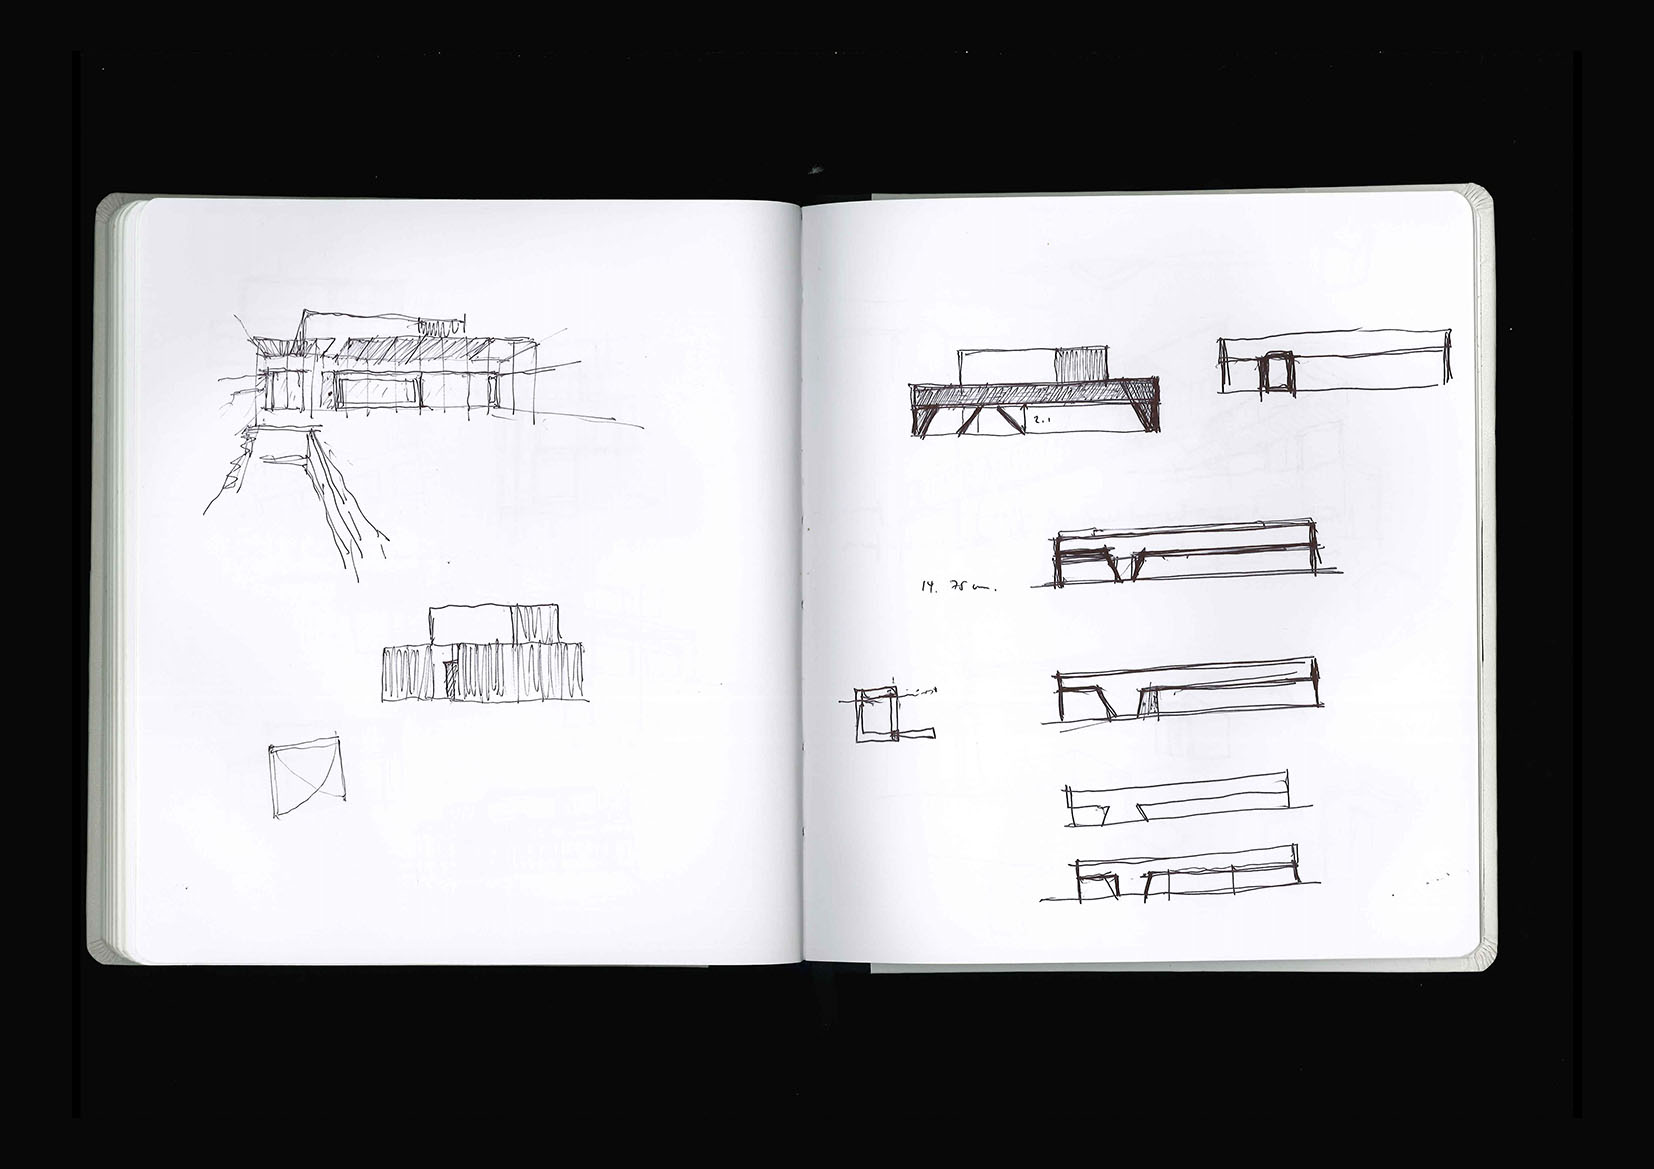 2.1
14. 75 cm.